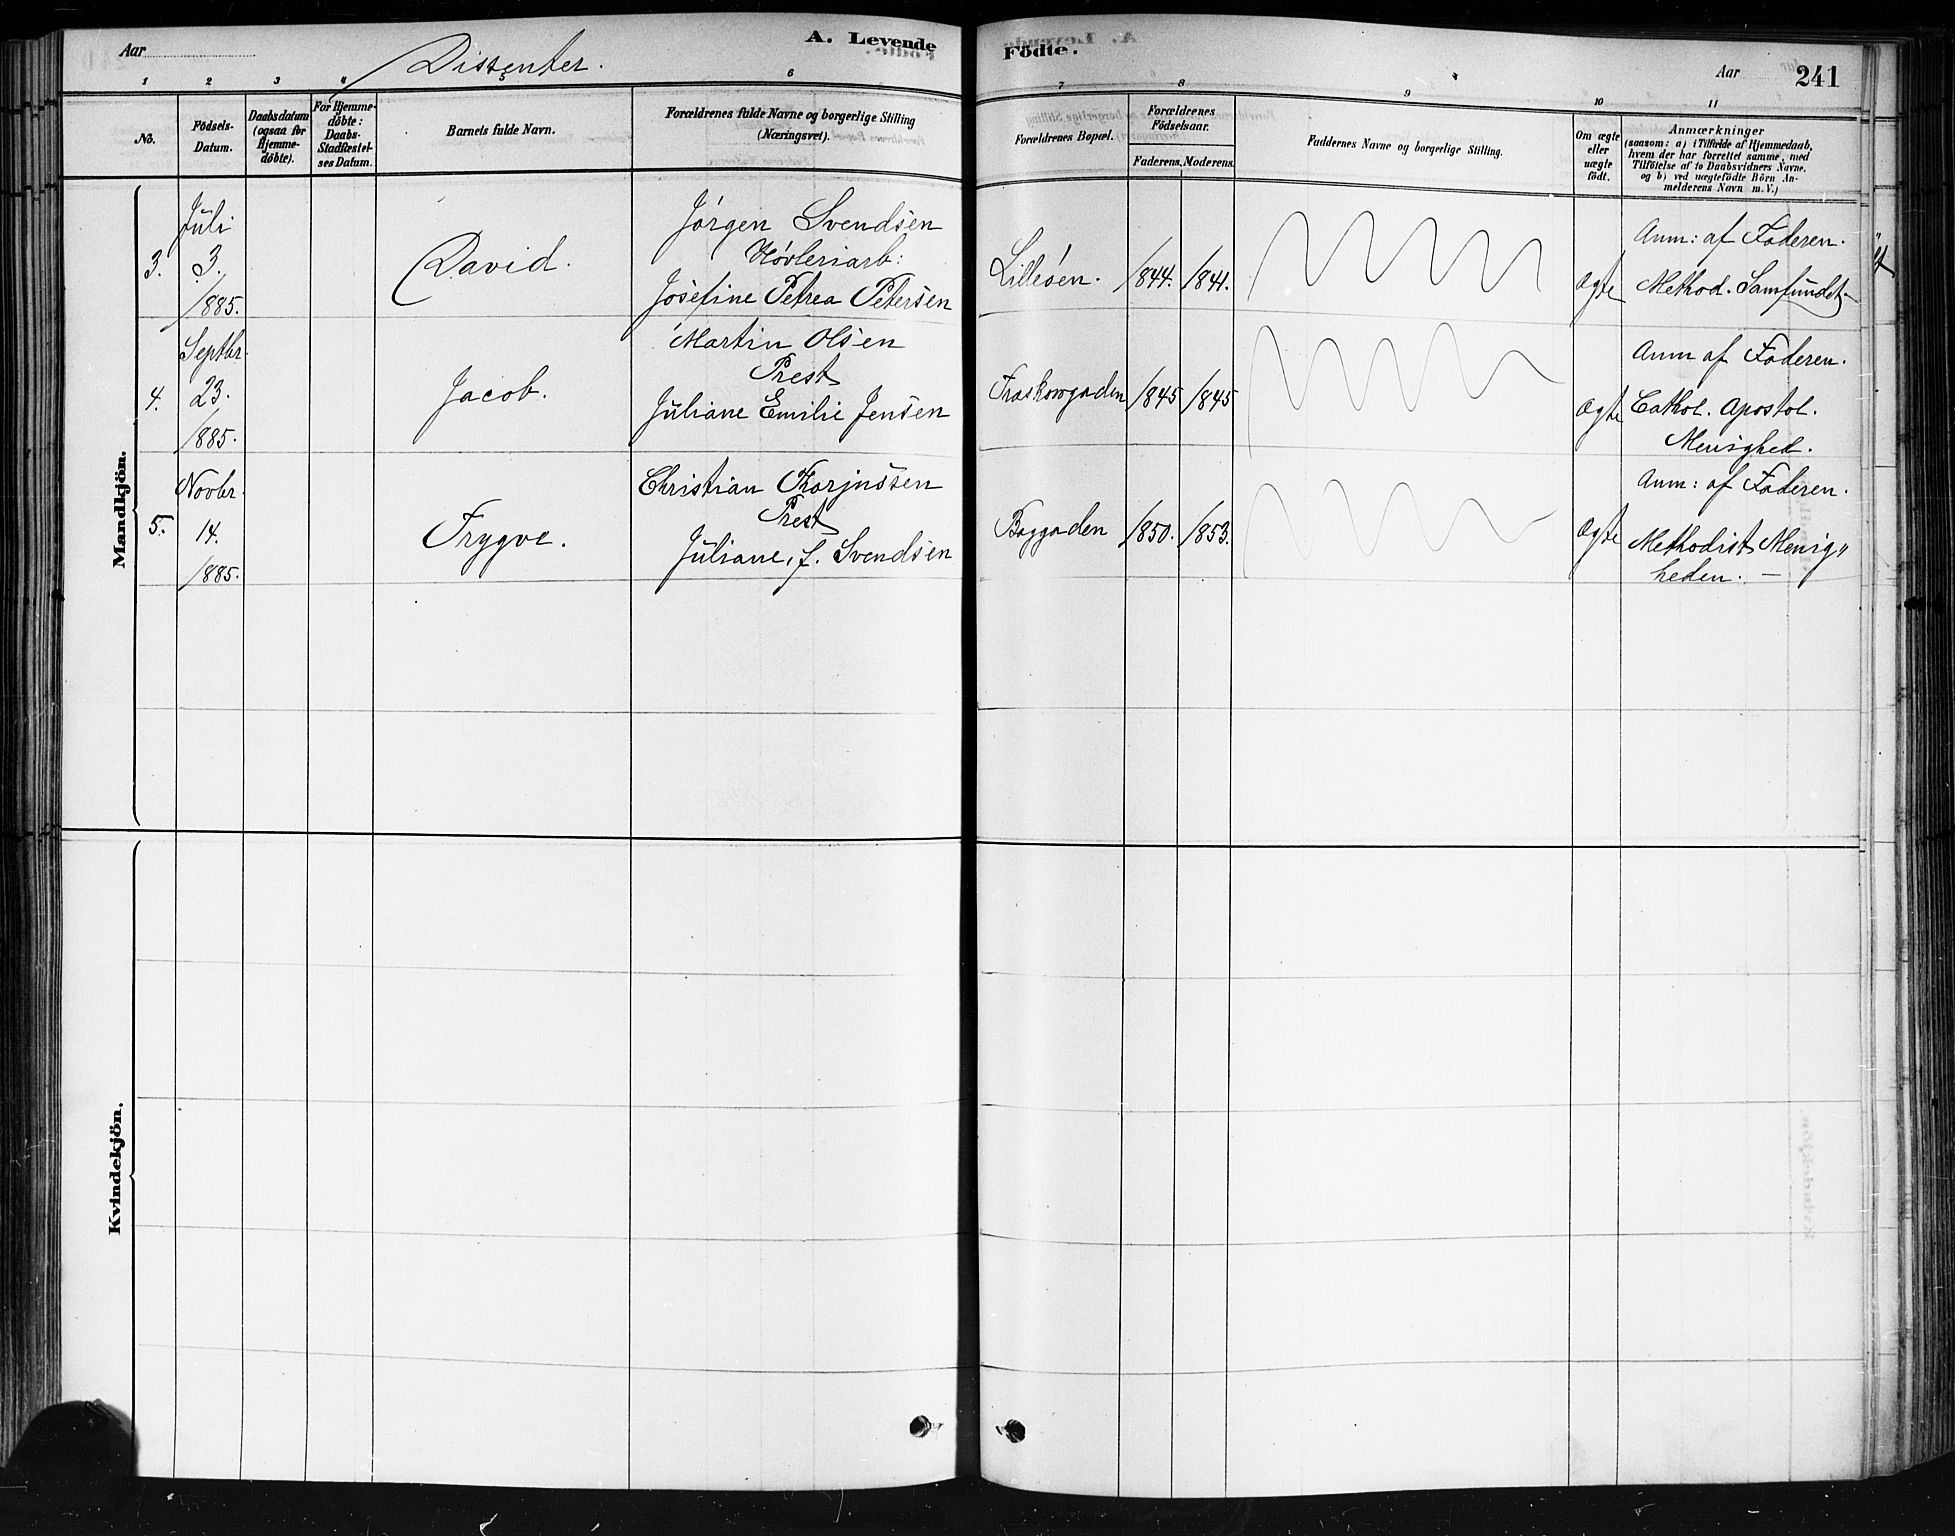 Aar
Dissenter.
A. Levende
Födte.
Aar
241
1
2
3
4
6
7
8
9
10
11
No.
Födsels-
Datum.
Daabsdatum
(ogsaa for
Hjemme-
döbte).
For Hjemme-
döbte:
Daabs-
Stadfæstel-
ses Datum.
Barnets fulde Navn.
Forældrenes fulde Navne og borgerlige Stilling
(Næringsvei).
Forældrenes Bopæl.
Forældrenes
Födselsaar.
Faderens.
Moderens.
Faddernes Navne og borgerlige Stilling.
Om ægte
eller
uægte
födt.
Anmærkninger
(saasom: a) i Tilfælde af Hjemmedaab,
hvem der har forrettet samme, med
Tilföielse af to Daabsvidners Navne,
og b) ved uægtefödte Börn An-
melderens Navn m. V.)
Mandkjön.
3.
Juli
3.
1885.
David.
Jörgen Svendsen
Høvleriarb:
Josefine Petrea Petersen
Lilleøen.
1844.
1841.
Ægte
Anm: af Faderen.
Method. Samfundet
4.
Septbr.
23.
1885.
Jacob.
Martin Olsen
Prest
Juliane Emilie Jensen
1845
1845
Ægte
Anm af Faderen.
Cathol. Apostol.
Menighed.
5.
Novbr.
14.
1885.
Trygve.
Christian Thorjussen
Prest
Juliane, f. Svendsen
Baggaden
1850.
1853.
Ægte
Anm: af Faderen.
Methodist Menig„
heden. —
Kvindekjön.